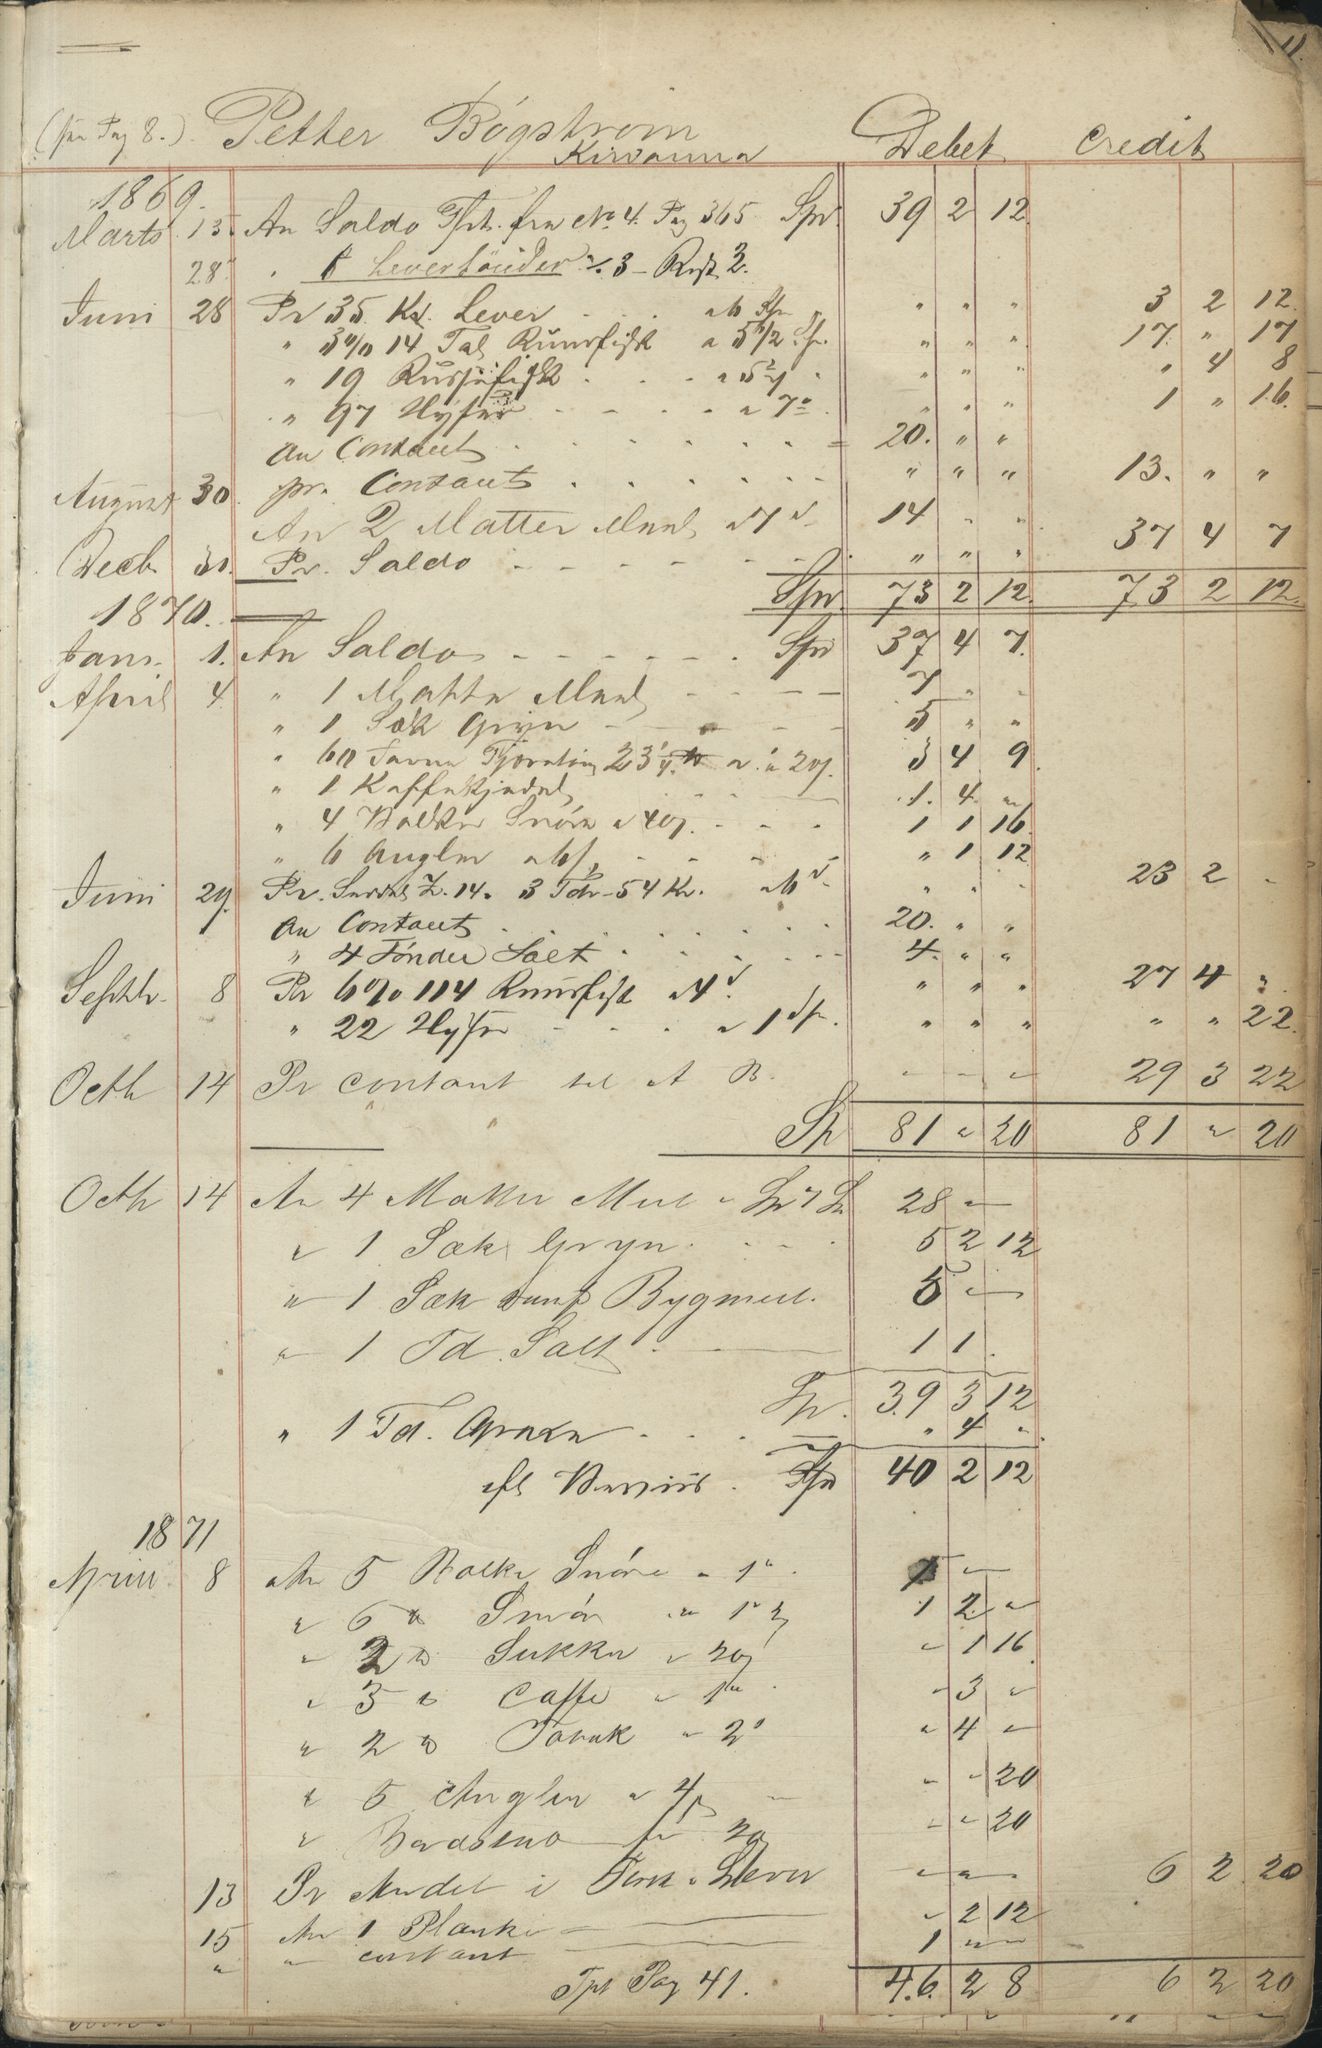 11
(fra Pag 8.) Petter Bógstrom Debet Credit
Kirvanna
1869.
Marts 13. An Saldo Tfrt. fra No 4. Pag 365 Spr. 39 2 12.
28. " 1 Levertönder % 3 - Rest 2.
Juni 28 Pr 35 Kr. Lever . . . a 6 " " " 3 2 12.
" 3 % 14 Tal Rundfisk a 5 1/2 Sp. " " " 17. " 17
" 19 Russefisk . . . a " " " " 4 8
" 97 Hyser . . . a 7 " " " 1 " 16.
An Contant . . . 20. " "
August 30 pr. Contant . . . " " " 13. " "
An 2 Matter Meel a 7 14 " "
Decb 31. Pr. Saldo - - - " " " 37 4 7
Spr. 73 2 12. 73 2 12.
1870.
Jan. 1. An Saldo - - - Spr 37 4 7.
April 4 " 1 Matte Meel - - - 7 " "
" 1 Sæk Gryn - - - 5 " "
" 60 Favne 3 4 9
" 1 Kaffekjedel 1. 4. "
" 4 Snöre a 40 1 1 16.
" 6 Angler a 6 " 1 12
Juni 29. Pr. Z. 14. 3 Tdr 54 Kr. a 6 " " " 23 2 -
An Contant . . . 20. " "
" 4 Tönder Salt . . . 4. " "
Septbr. 8 Pr 6 % 114 Rundfisk a 4 " " " 27 4 "
" 22 Hyser - - . a 1 sk. " " " " " 22.
Octb 14 Pr contant til A B. - - - 29 3 22
Sp 81 " 20 81 " 20
Octb 14 An 4 Matter Meel a Sp 7 28 -
" 1 Sæk Gryn . . . 5 2 12
" 1 Sæk Bygmeel. 5 -
" 1 Td. Salt . 1 1 .
Sp. 39 3 12
" 1 Td. . . . " 4 "
Spr 40 2 12
1871
April 8 An 5 Snöre a 1 " -
" 6 Smör " 1 1 2 "
" 2 Sukker a 20 " 1 16.
" 3 Caffe a 1 " 3 "
" 2 Tobak a 2 " 4 "
" 5 Angler a 4 " " 20
" " " 20
13 Pr Andel i Torsk & Lever " " 6 2 20
15 An 1 Planke " 2 12
" " contant 1 " "
Tfrt Pag 41. 46. 2 8 6 2 20